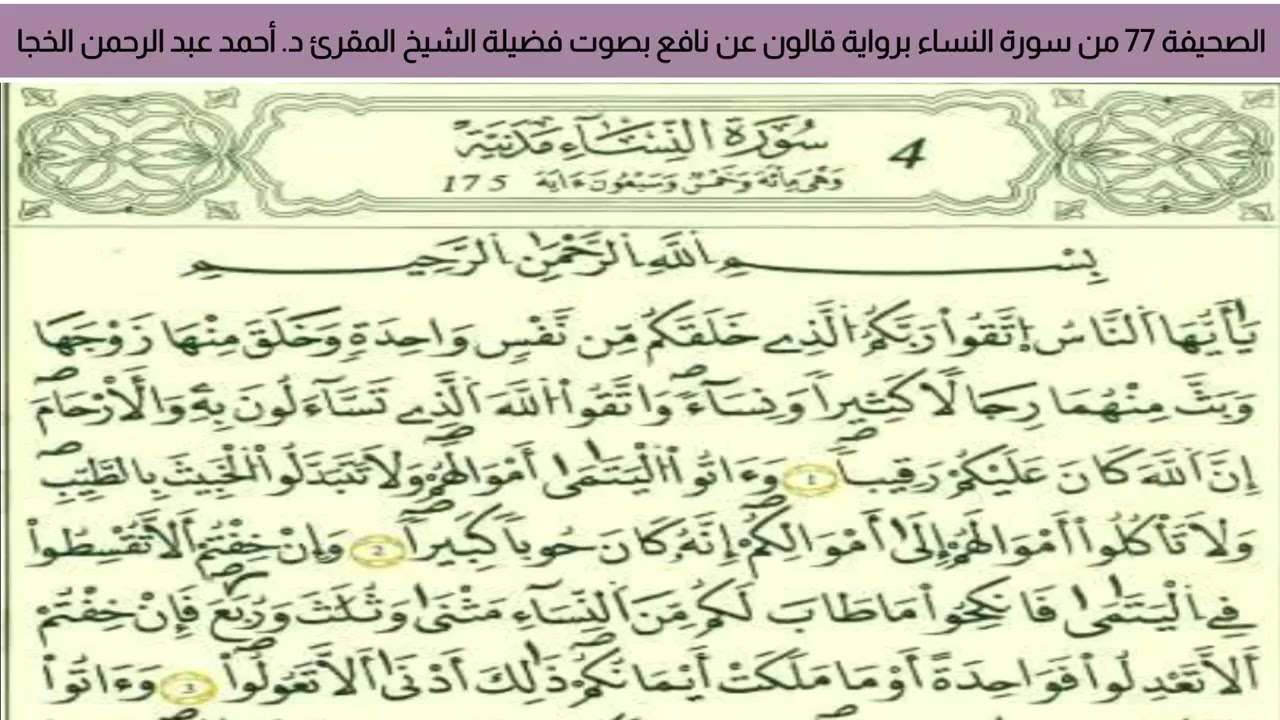 الصحيفة 77 من سورة النساء برواية قالون عن نافع بصوت فضيلة الشيخ المقرئ د. أحمد عبد الرحمن الخجا
4 سُورَةُ النِّسَآءِ مَدَنِيَّة
وَهْيَ مِاْئَةٌ وَخَمْسٌ وَسَبْعُونَ ءَايَةً 175
بِسْمِ اِللَّهِ اِلرَّحْمَٰنِ اِلرَّحِيمِ
يَٰٓأَيُّهَا اَلنَّاسُ اُ۪تَّقُواْ رَبَّكُمُ اُلَّذِے خَلَقَكُم مِّن نَّفْسٖ وَاحِدَةٖ وَخَلَقَ مِنْهَا زَوْجَهَا
وَبَثَّ مِنْهُمَا رِجَالاٗ كَثِيراٗ وَنِسَآءٗۖ وَاتَّقُواْ اُللَّهَ اَلَّذِے تَسَّآءَلُونَ بِهِۦ وَالْأَرْحَامَۖ
إِنَّ اَللَّهَ كَانَ عَلَيْكُمْ رَقِيباٗۖ 1 وَءَاتُواْ اُلْيَتَٰمَىٰ أَمْوَٰلَهُمْۖ وَلَا تَتَبَدَّلُواْ اُلْخَبِيثَ بِالطَّيِّبِۖ
وَلَا تَأْكُلُواْ أَمْوَٰلَهُمْ إِلَىٰ أَمْوَٰلِكُمْۖ إِنَّهُۥ كَانَ حُوباٗ كَبِيراٗۖ 2 وَإِنْ خِفْتُمْ أَلَّا تُقْسِطُواْ
فِے اِلْيَتَٰمَىٰ فَانكِحُواْ مَا طَابَ لَكُم مِّنَ اَلنِّسَآءِ مَثْنَىٰ وَثُلَٰثَ وَرُبَٰعَۖ فَإِنْ خِفْتُمْ
أَلَّا تَعْدِلُواْ فَوَٰحِدَةً أَوْ مَا مَلَكَتْ أَيْمَٰنُكُمْۖ ذَٰلِكَ أَدْنَىٰ أَلَّا تَعُولُواْۖ 3 وَءَاتُواْ